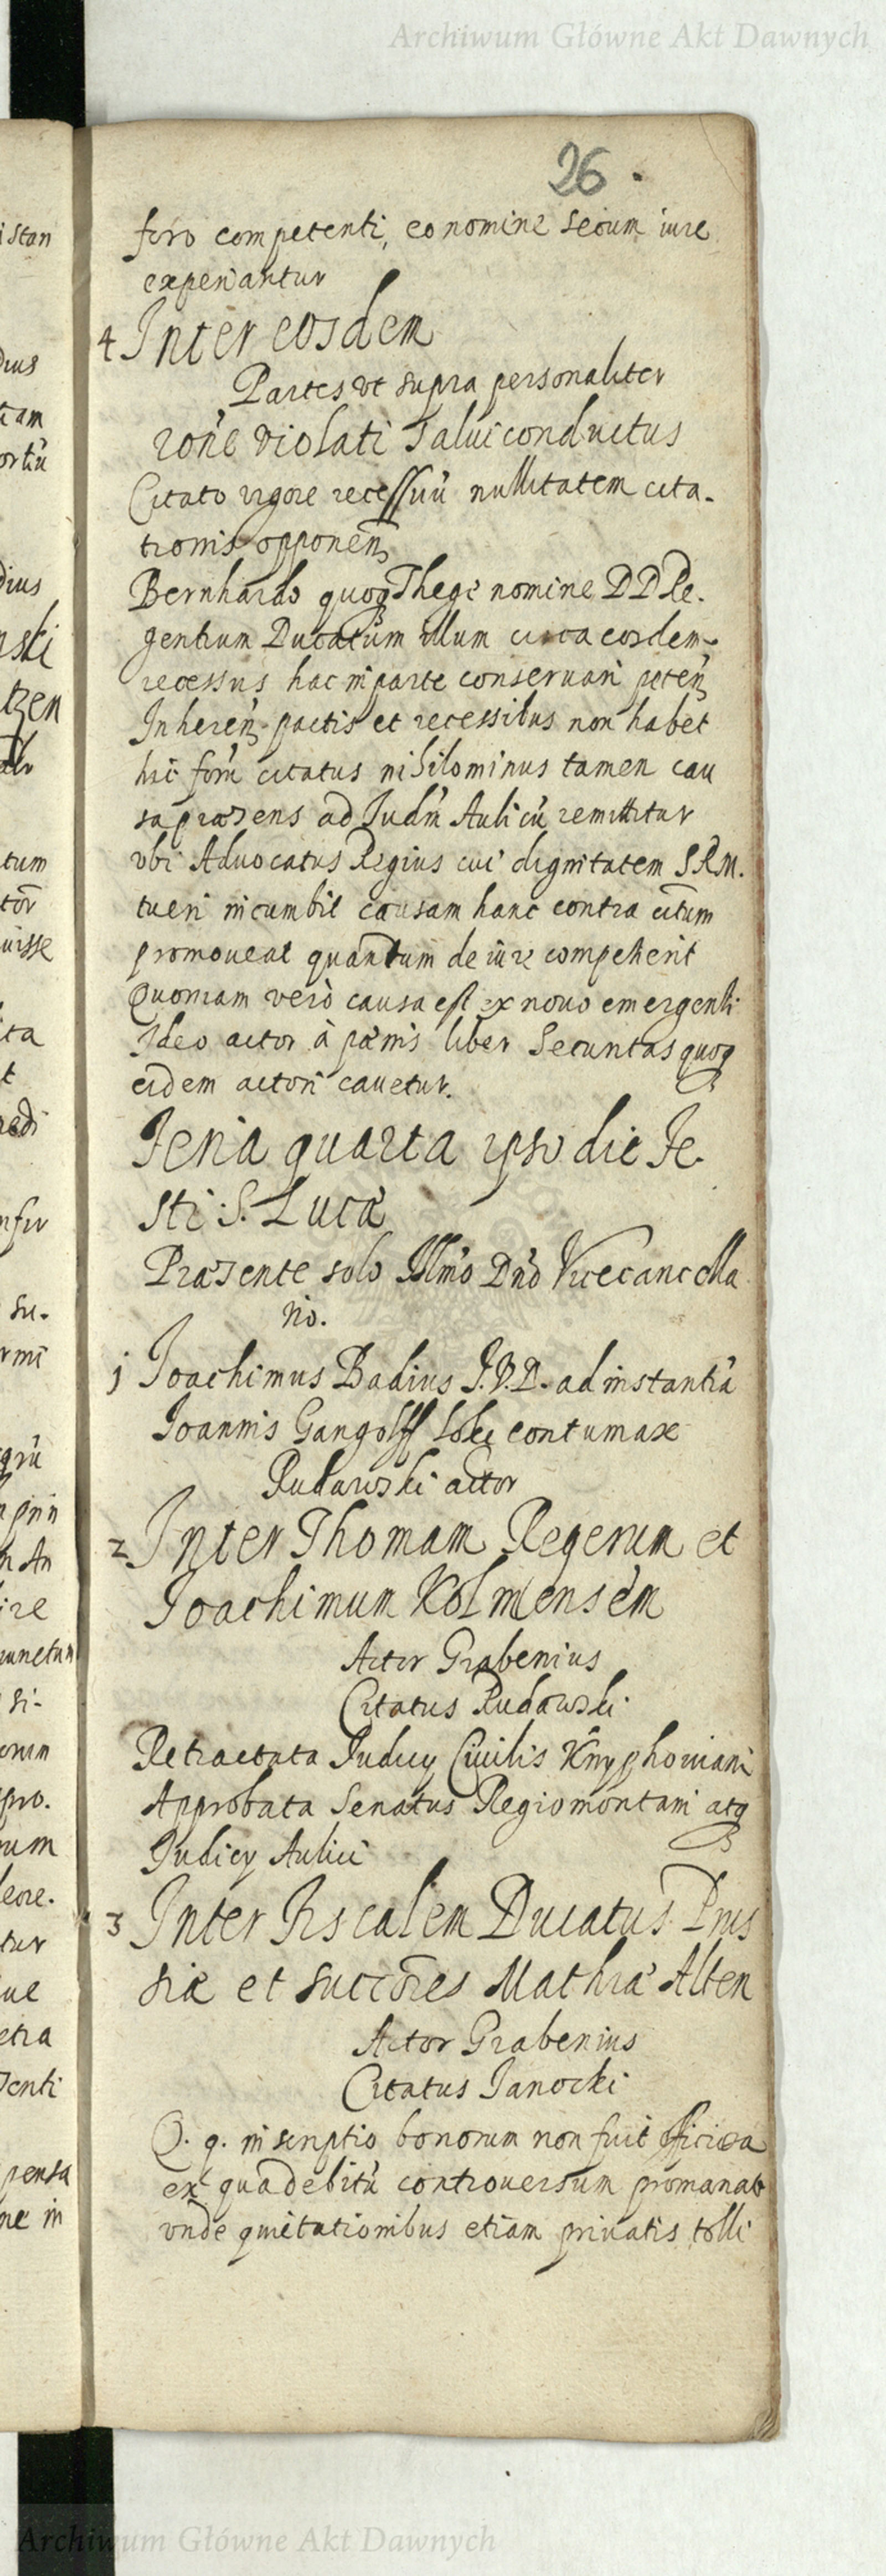 Archiwum Główne Akt Dawnych
26.
foro competenti, eo nomine secum iure
experiantur
4 Inter eosdem
Partes vt supra personaliter
rōne violati salui conductus
Citato vigore recessuū nullitatem cita-
tionis opponeñ
Bernhardo quoq Thege nomine DD Re-
gentium Ducatum illum circa eosdem
recessus hac in parte conseruari peteñ
Inhereñ pactis et recessibus non habet
hic forū citatus nihilominus tamen cau
sa præsens ad Judm̄ Aulicū remittitur
vbi Aduocatus Regius cui dignitatem SRM.
tueri incumbit causam hanc contra citum
promoueat quantum de iure competierit
Quoniam verò causa est ex nouo emergenti
Ideo actor à pœnis liber Securitas quoq
eidem actori cauetur.
Feria quarta ipso die Fe-
sti S. Lucæ
Præsente solo Illmo Dño Vicecancella
rio.
1 Joachimus Badius J.V.D. ad instantiā
Joannis Gangolff contumax
Rudawski actor
2 Inter Thomam Regerum et
Joachimum Kolmensem
Actor Grabenius
Citatus Rudawski
Retractata Judicy Ciuilis Knyphouiani
Approbata Senatus Regiomontani atq
Judicy Aulici
3 Inter Fiscalem Ducatus Prus
siæ et succōres Mathiæ Alten
Actor Grabenius
Citatus Janocki
Q. q. inscriptio bonorum non fuit
ex qua debitū controuersum promanat
vnde quietationibus etiam priuatis tolli
Archiwum Główne Akt Dawnych